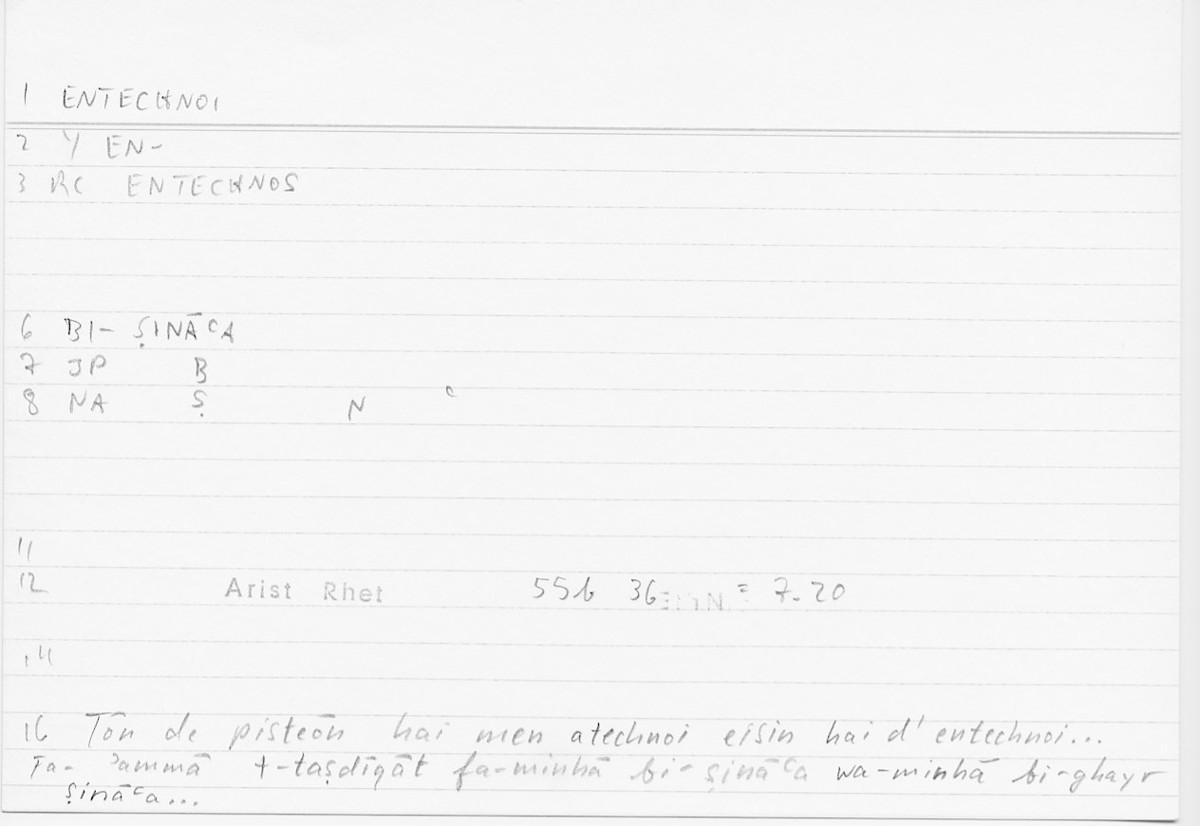 1 ENTECHNOI
2 Y EN-
3 RC ENTECHNOS
6 BI- ṢINĀʿA
7 JP B
8 NA Ṣ N ʿ
11
12 Arist Rhet 55b 36 = 7.20
14
16 Tōn de pisteōn hai men atechnoi eisin hai d' entechnoi...
Fa- ʾammā t-taṣdīqāt fa-minhā bi-ṣināʿa wa-minhā bi-ghayr
ṣināʿa...